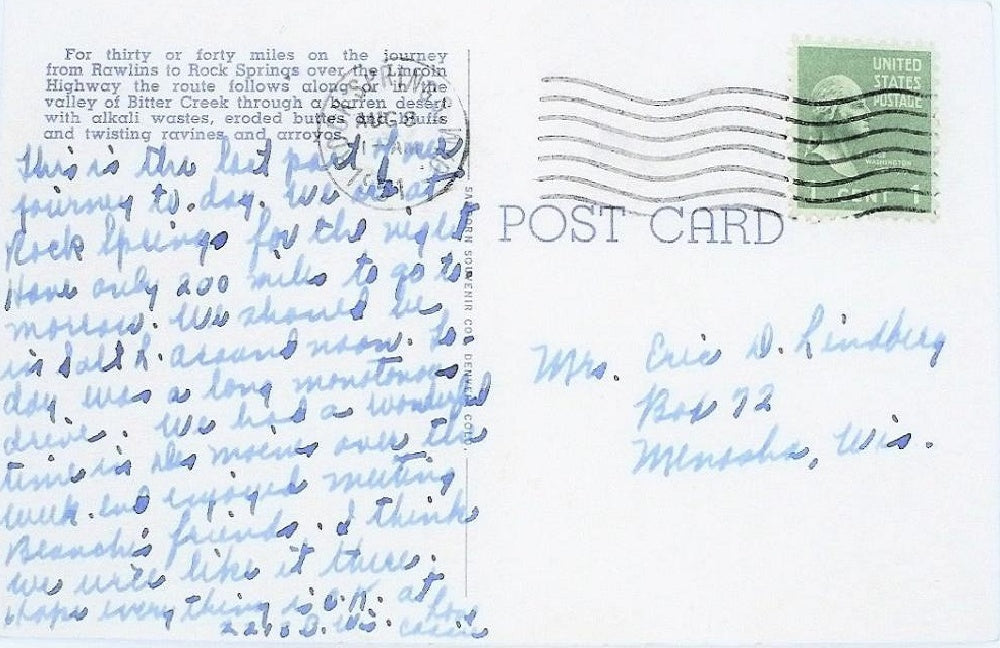 For thirty or forty miles on the journey
from Rawlins to Rock Springs over the Lincoln
Highway the route follows along or in the
valley of Bitter Creek through a barren desert
with alkali wastes, eroded buttes and bluffs
and twisting ravines and arroyos.
This is the last part of our
journey to-day. We are at
Rock Springs for the night
Have only 200 miles to go to-
morrow. We should be
in Salt L. around noon. To-
day was a long monotonous
drive. We had a wonderful
time in Des Moines over the
week-end enjoyed meeting
Blanche's friends. I think
we will like it there.
Hope everything is O.K. at
home
SANBORN SOUVENIR CO., DENVER, COLO.
ROCK SPRINGS
AUG 8
AM
1951
WYO.
UNITED
STATES
POSTAGE
WASHINGTON
CENT 1
POST CARD
Mrs. Eric D. Lindberg
Box 72
Menasha, Wis.